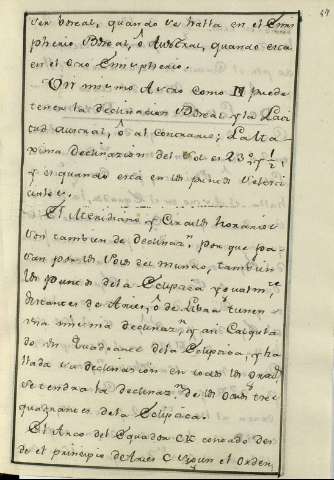 ser boreal, quando se halla en el Emis
pherio Boreal, ô Austral, quando está
en el otro Emispherio.
Un mismo Astro como N puede
tener la declinacion Boreal y la Lati
tud Austral, ô al contrario; La Ma
xima Declinazion del Sol es 23° y 1/2,
y es quando está en los puntos Solsti
ciales.
El Meridiano y Circulos horarios
son tambien de declinaz.n porque pa
san por los Polos del mundo, tambien
los puntos de la Ecliptica ygualm.te
distantes de Aries, ô de Libra tienen
una misma declinaz.n y asi Calcula
do un Quadrante de la Ecliptica, y ha
llada su declinacion en todos los grad.s
se tendra la declinaz.n de los otros tres
quadrantes de la Ecliptica.
El Arco del Equador CK contado des
de el principio de Aries C segun el orden